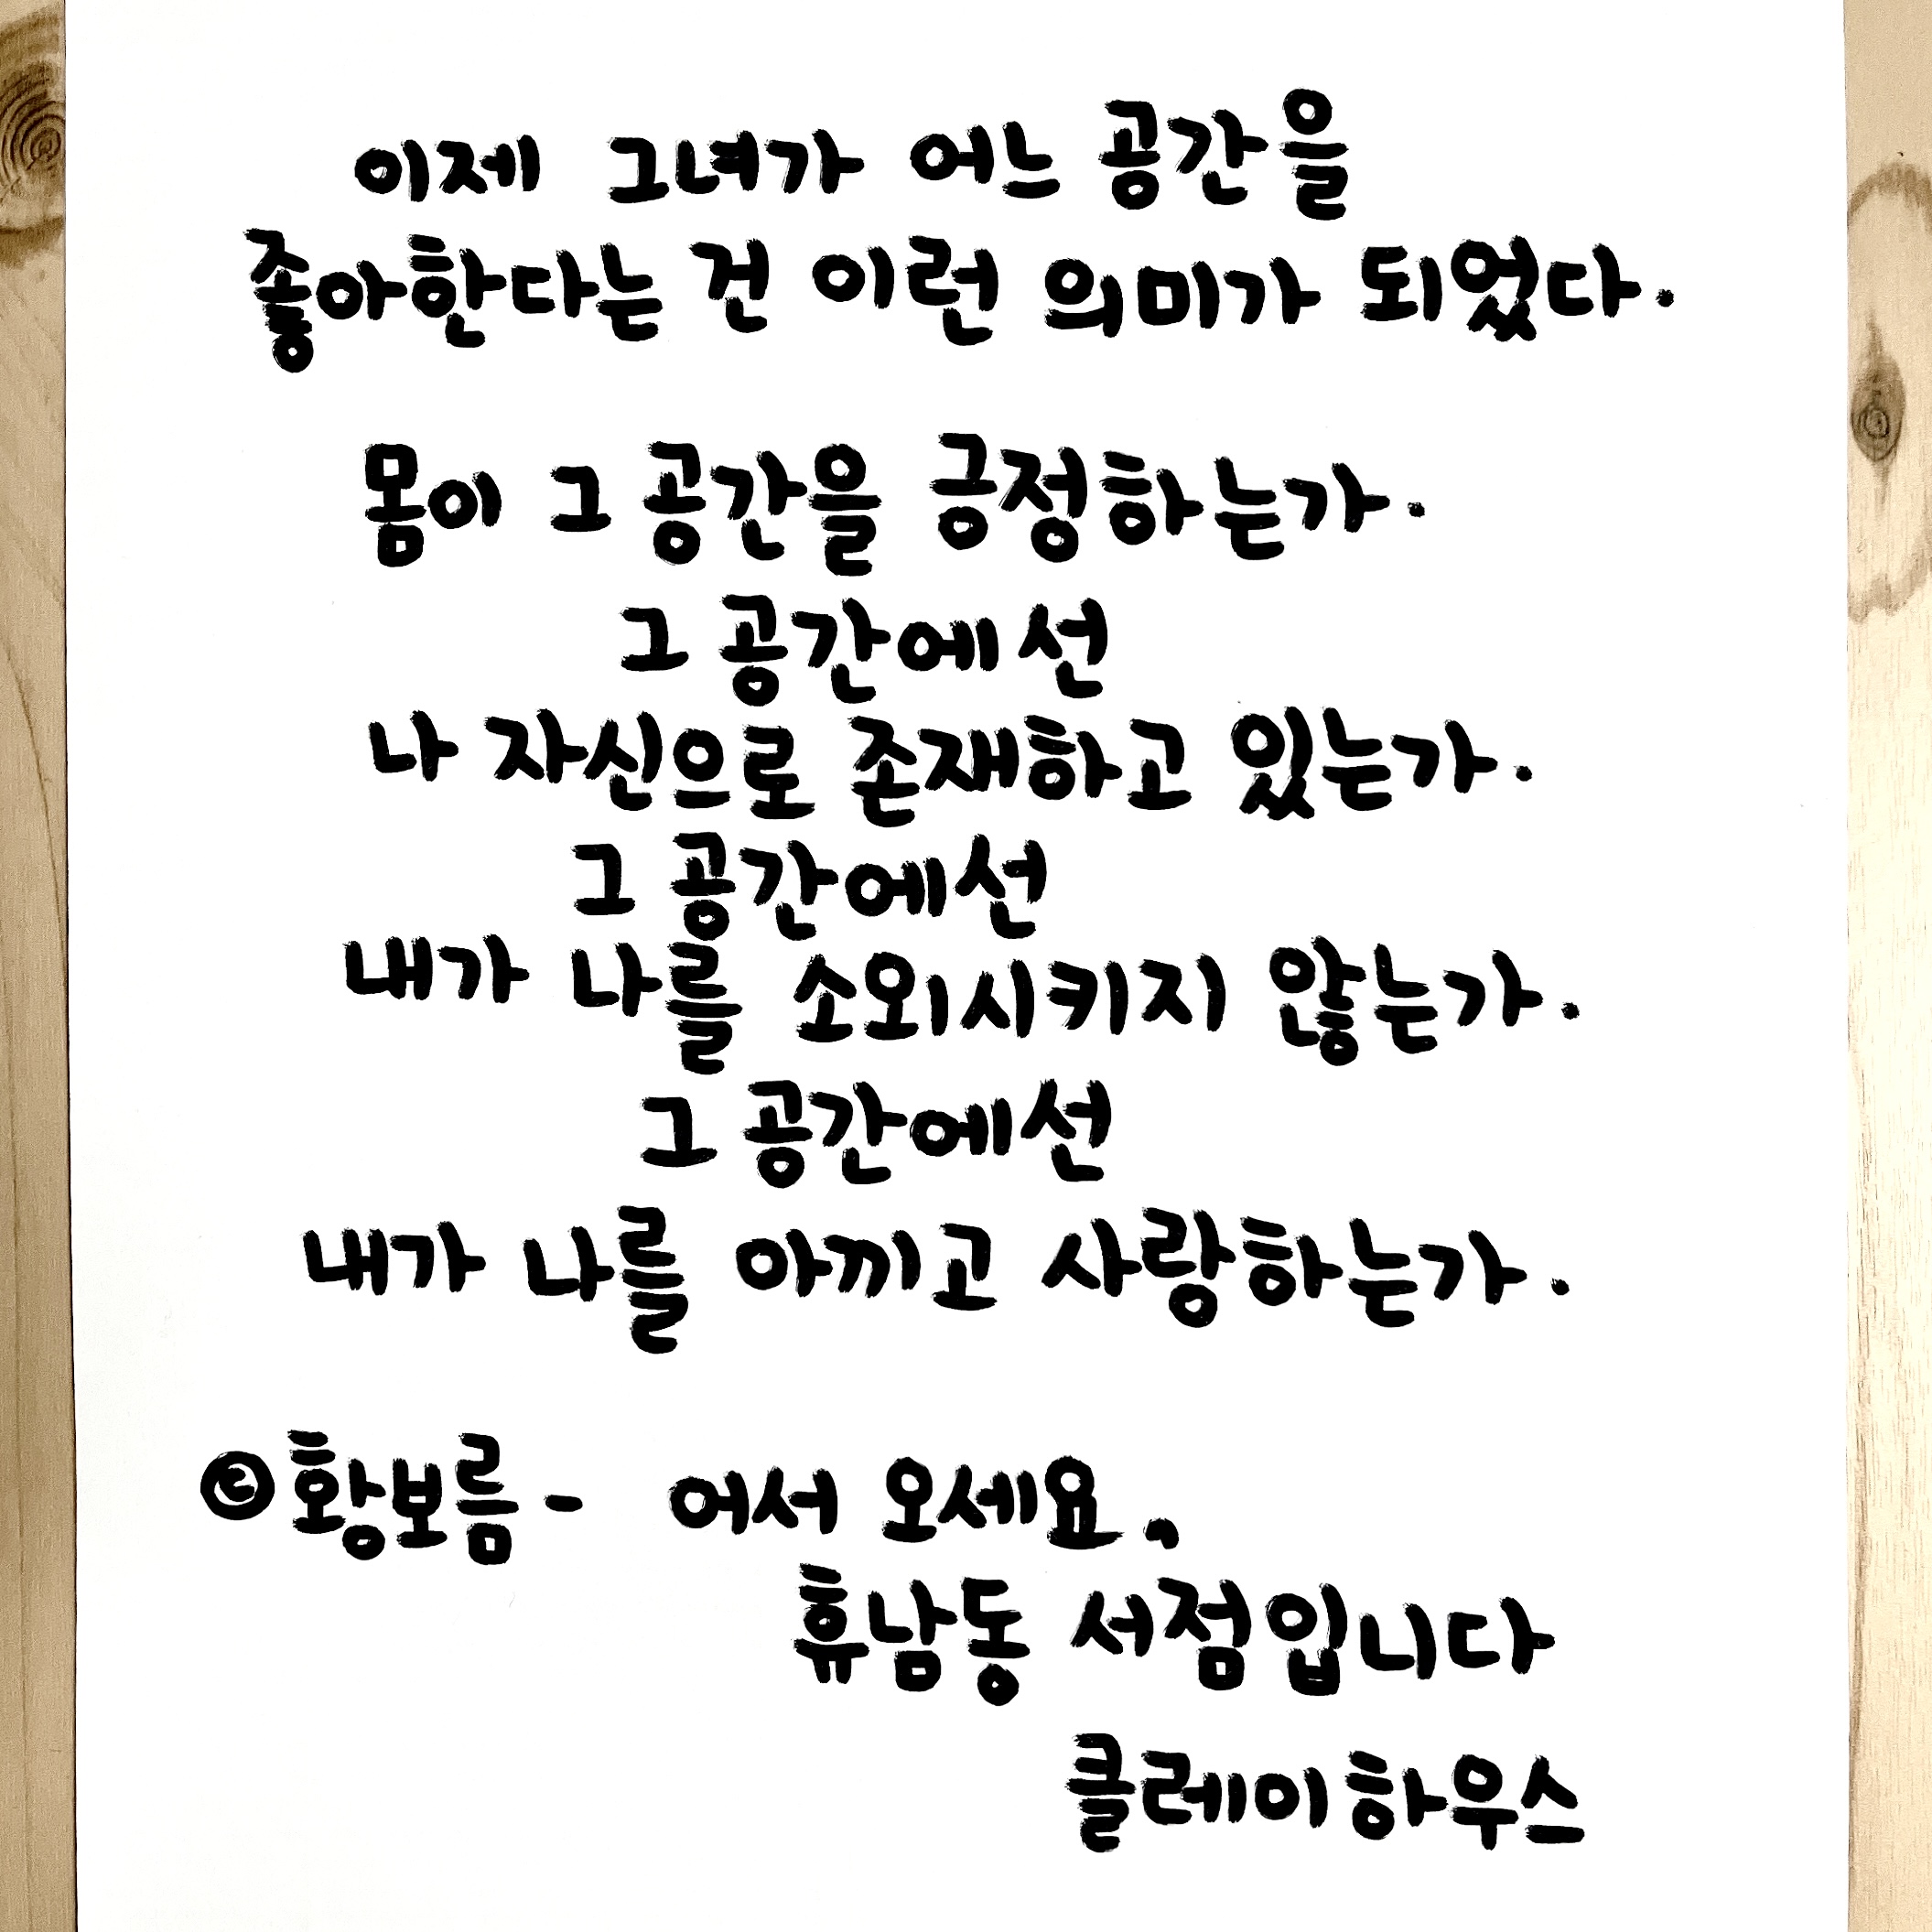 이제 그녀가 어느 공간을
좋아한다는 건 이런 의미가 되었다.
몸이 그 공간을 긍정하는가.
그 공간에선
나 자신으로 존재하고 있는가.
그 공간에선
내가 나를 소외시키지 않는가.
그 공간에선
내가 나를 아끼고 사랑하는가.
©황보름 - 어서 오세요,
휴남동 서점입니다
클레이하우스